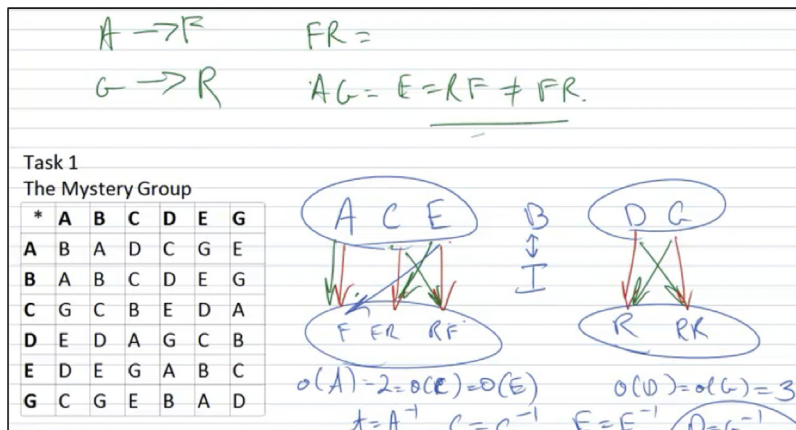 A → F FR =
G → R AG = E = RF ≠ FR.
Task 1
The Mystery Group
* A B C D E G
A B A D C G E
B A B C D E G
C G C B E D A
D E D A G C B
E D E G A B C
G C G E B A D
A C E B D G
↕
I
F FR RF R RR
o(A) = 2 = o(C) = o(E) o(D) = o(G) = 3
A = A⁻¹ C = C⁻¹ E = E⁻¹ D = G⁻¹